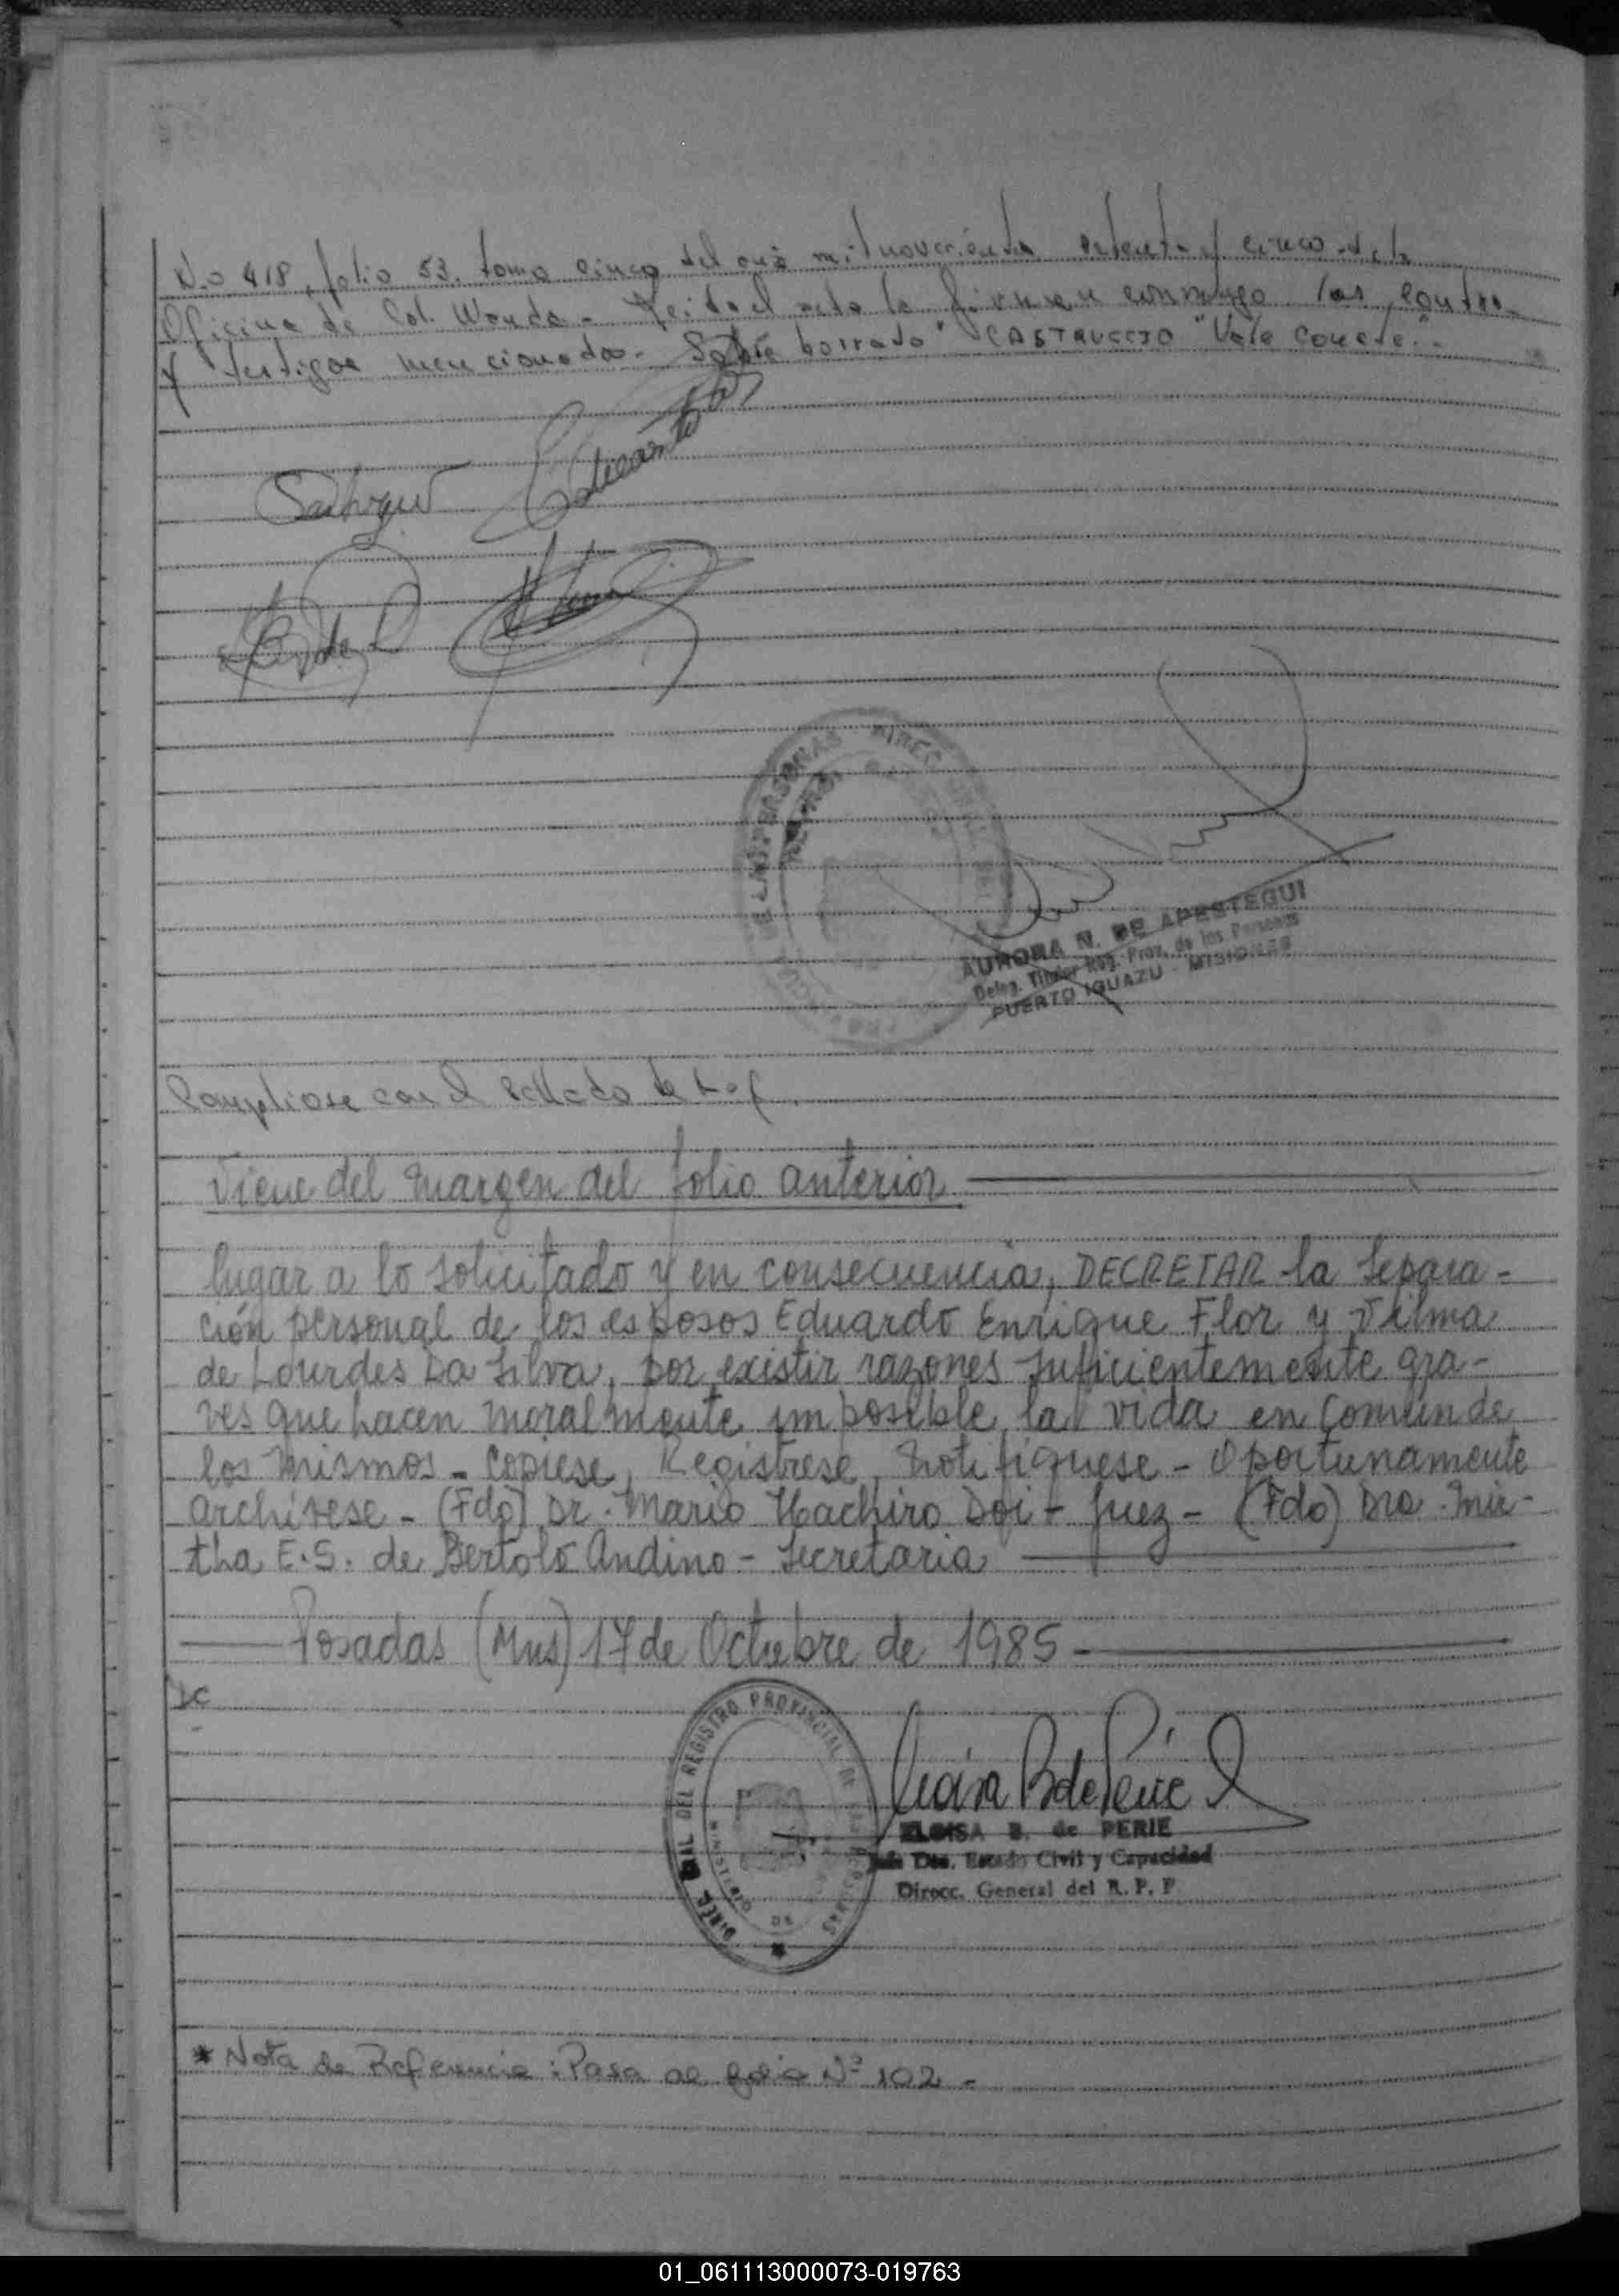 No 418, folio 53. tomo cinco del año mil novecientos setenta y cinco de la
Oficina de Col. Wanda - Leida el acta la firman conmigo los contra-
y testigos mencionados. Sobre borrado "CASTRUCCIO" Vale Conste.-
DE LAS PERSONAS DIREC
AURORA N. DE APESTEGUI
Deleg. Titular Reg. Prov. de las Personas
PUERTO IGUAZU - MISIONES
con el sellado de Ley.
Viene del margen del folio anterior
lugar a lo solicitado y en consecuencia, DECRETAR la Separa-
ción personal de los esposos Eduardo Enrique Flor y Vilma
de Lourdes Da Silva, por existir razones suficientemente gra-
ves que hacen moralmente imposible la vida en Común de
los mismos - Copiese, Registrese, Notifiquese - Oportunamente
archivese - (Fdo) Dr. Mario Hachiro Doi - Juez - (Fdo) Dra. Mir-
tha E.S. de Bertolo Andino - Secretaria
Posadas (Mns) 17 de Octubre de 1985 -
DIREC GRAL DEL REGISTRO PROVINCIAL DE LAS PERSONAS
MINISTERIO DE
ELOISA B. de PERIE
Jefe Dto. Estado Civil y Capacidad
Direcc. General del R. P. P
* Nota de Referencia: Pasa al folio Nº 102 -
01_061113000073-019763